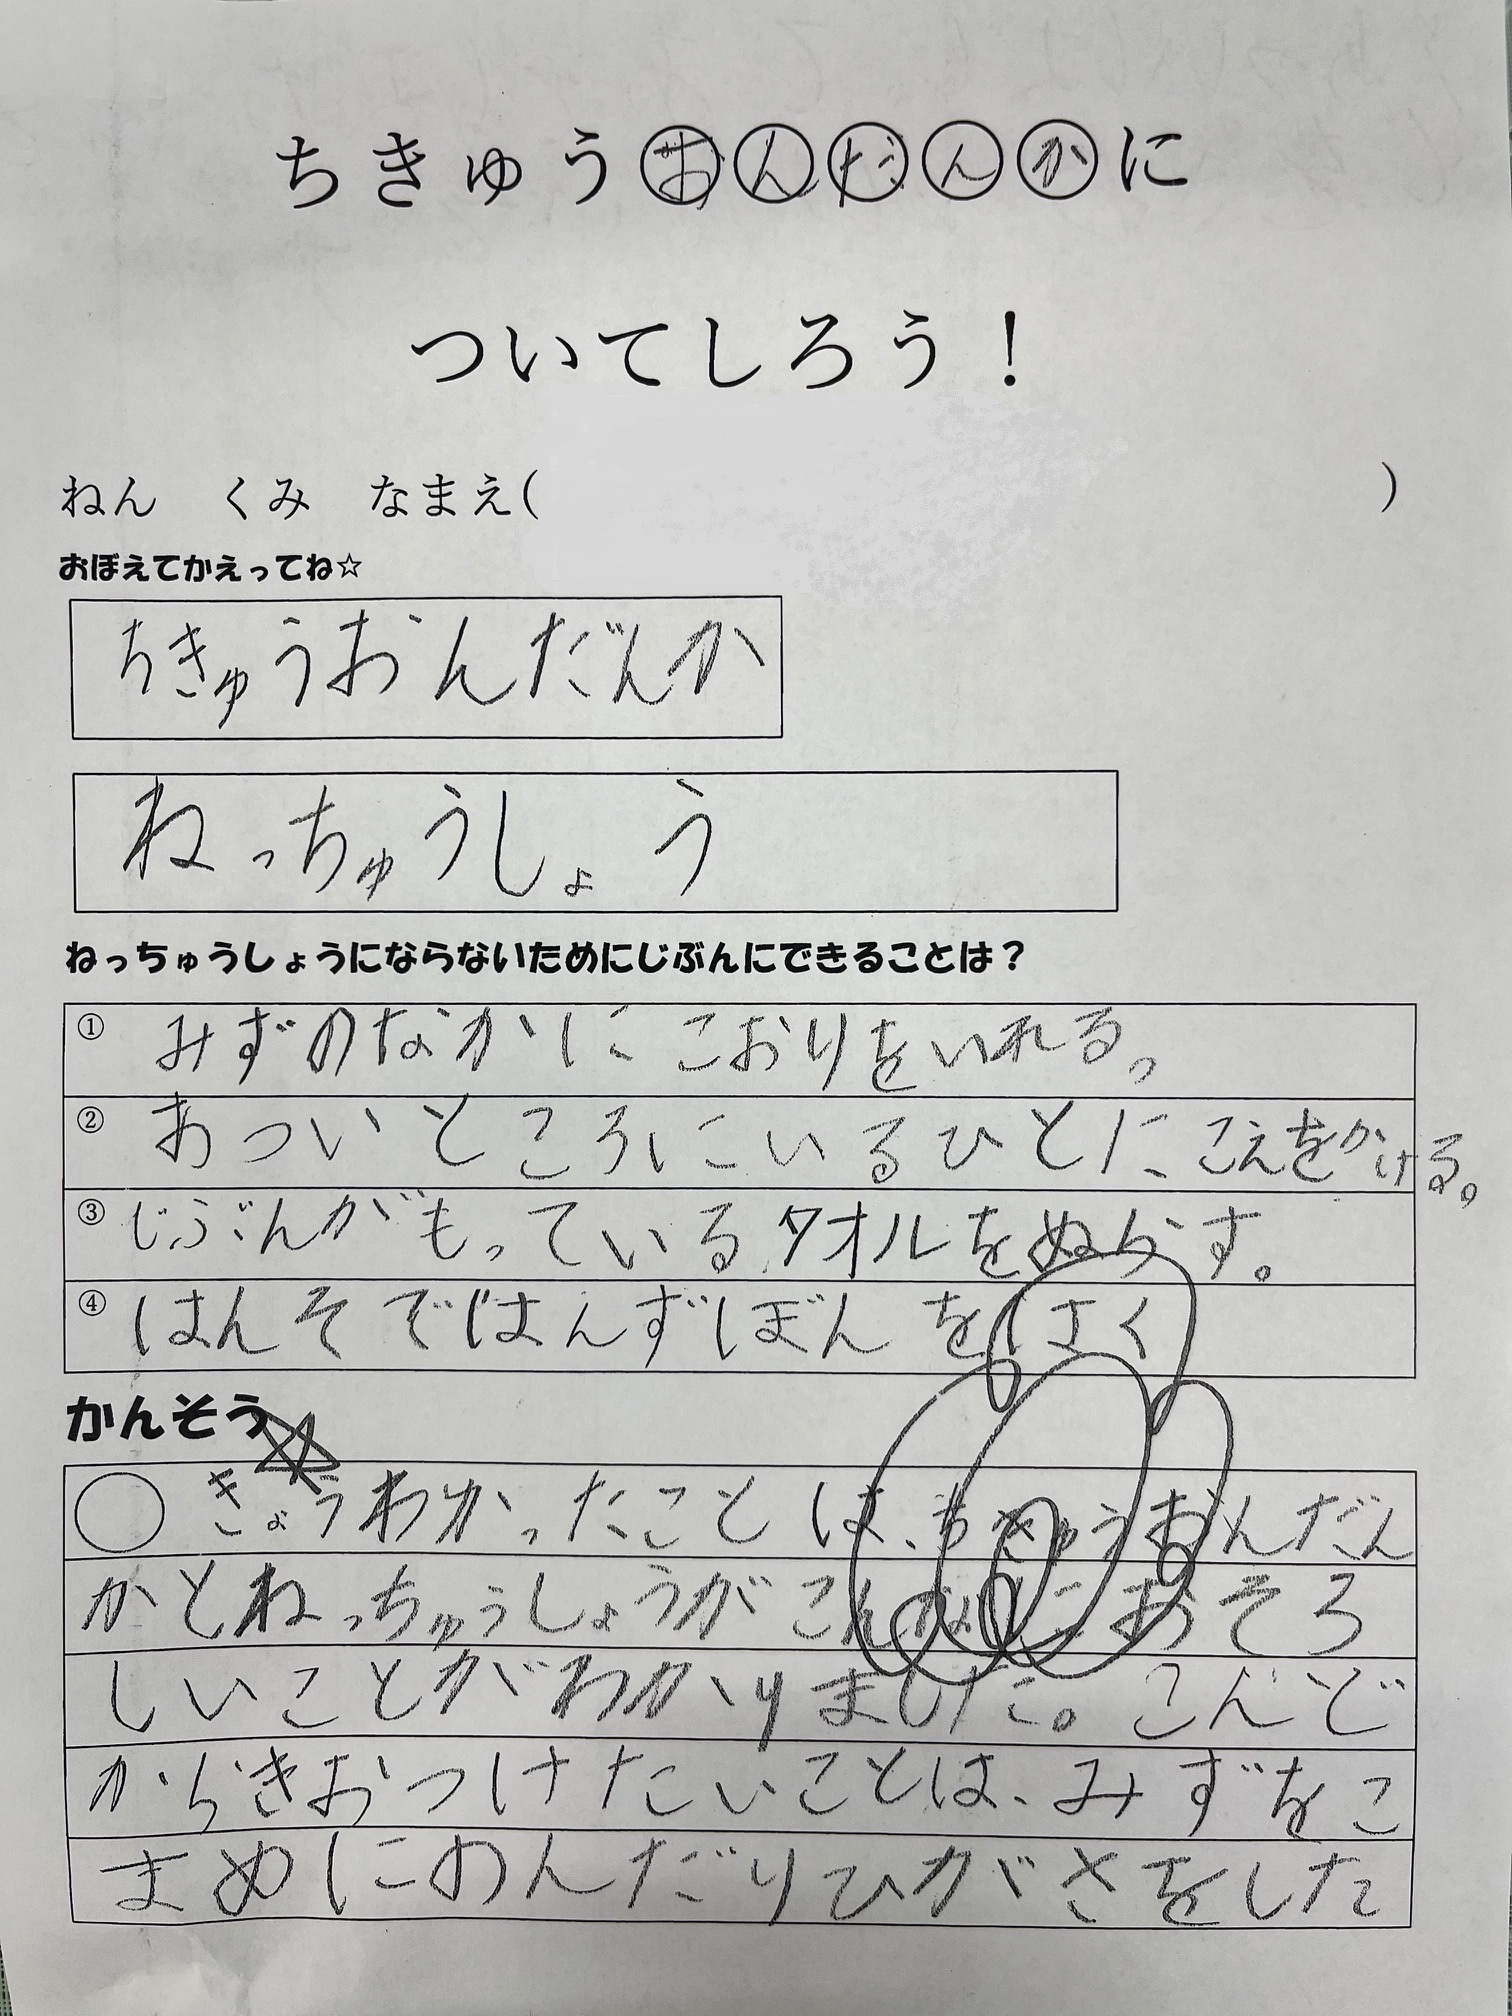 ちきゅうおんだんかに
ついてしろう！
ねん　くみ　なまえ(　　　)
おぼえてかえってね☆
ちきゅうおんだんか
ねっちゅうしょう
ねっちゅうしょうにならないためにじぶんにできることは？
① みずのなかにこおりをいれる。
② あついところにいるひとにこえをかける。
③ じぶんがもっているタオルをぬらす。
④ はんそではんずぼんをはく
かんそう
きょうわかったことは、ちきゅうおんだん
かとねっちゅうしょうがこんなにおそろ
しいことがわかりました。こんど
からきおつけたいことは、みずをこ
まめにのんだりひがさをした